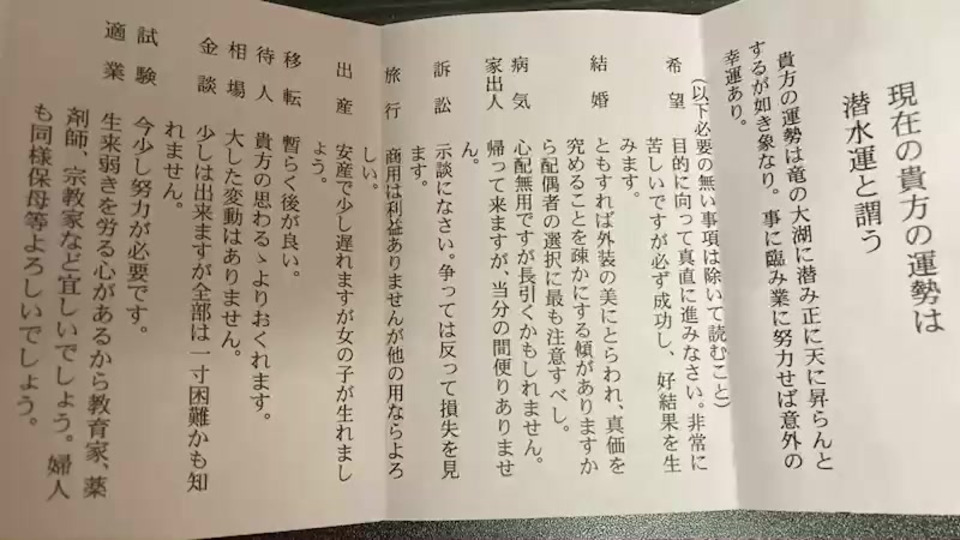 現在の貴方の運勢は
潜水運と謂う
貴方の運勢は竜の大湖に潜み正に天に昇らんと
するが如き象なり。事に臨み業に努力せば意外の
幸運あり。
(以下必要の無い事項は除いて読むこと)
希望 目的に向って真直に進みなさい。非常に
苦しいですが必ず成功し、好結果を生
みます。
結婚 ともすれば外装の美にとらわれ、真価を
究めることを疎かにする傾がありますか
ら配偶者の選択に最も注意すべし。
病気 心配無用ですが長引くかもしれません。
家出人 帰って来ますが、当分の間便りありませ
ん。
訴訟 示談になさい。争っては反って損失を見
ます。
旅行 商用は利益ありませんが他の用ならよろ
しい。
出産 安産で少し遅れますが女の子が生れまし
ょう。
移転 暫らく後が良い。
待人 貴方の思わるゝよりおくれます。
相場 大した変動はありません。
金談 少しは出来ますが全部は一寸困難かも知
れません。
試験 今少し努力が必要です。
適業 生来弱きを労る心があるから教育家、薬
剤師、宗教家など宜しいでしょう。婦人
も同様保母等よろしいでしょう。